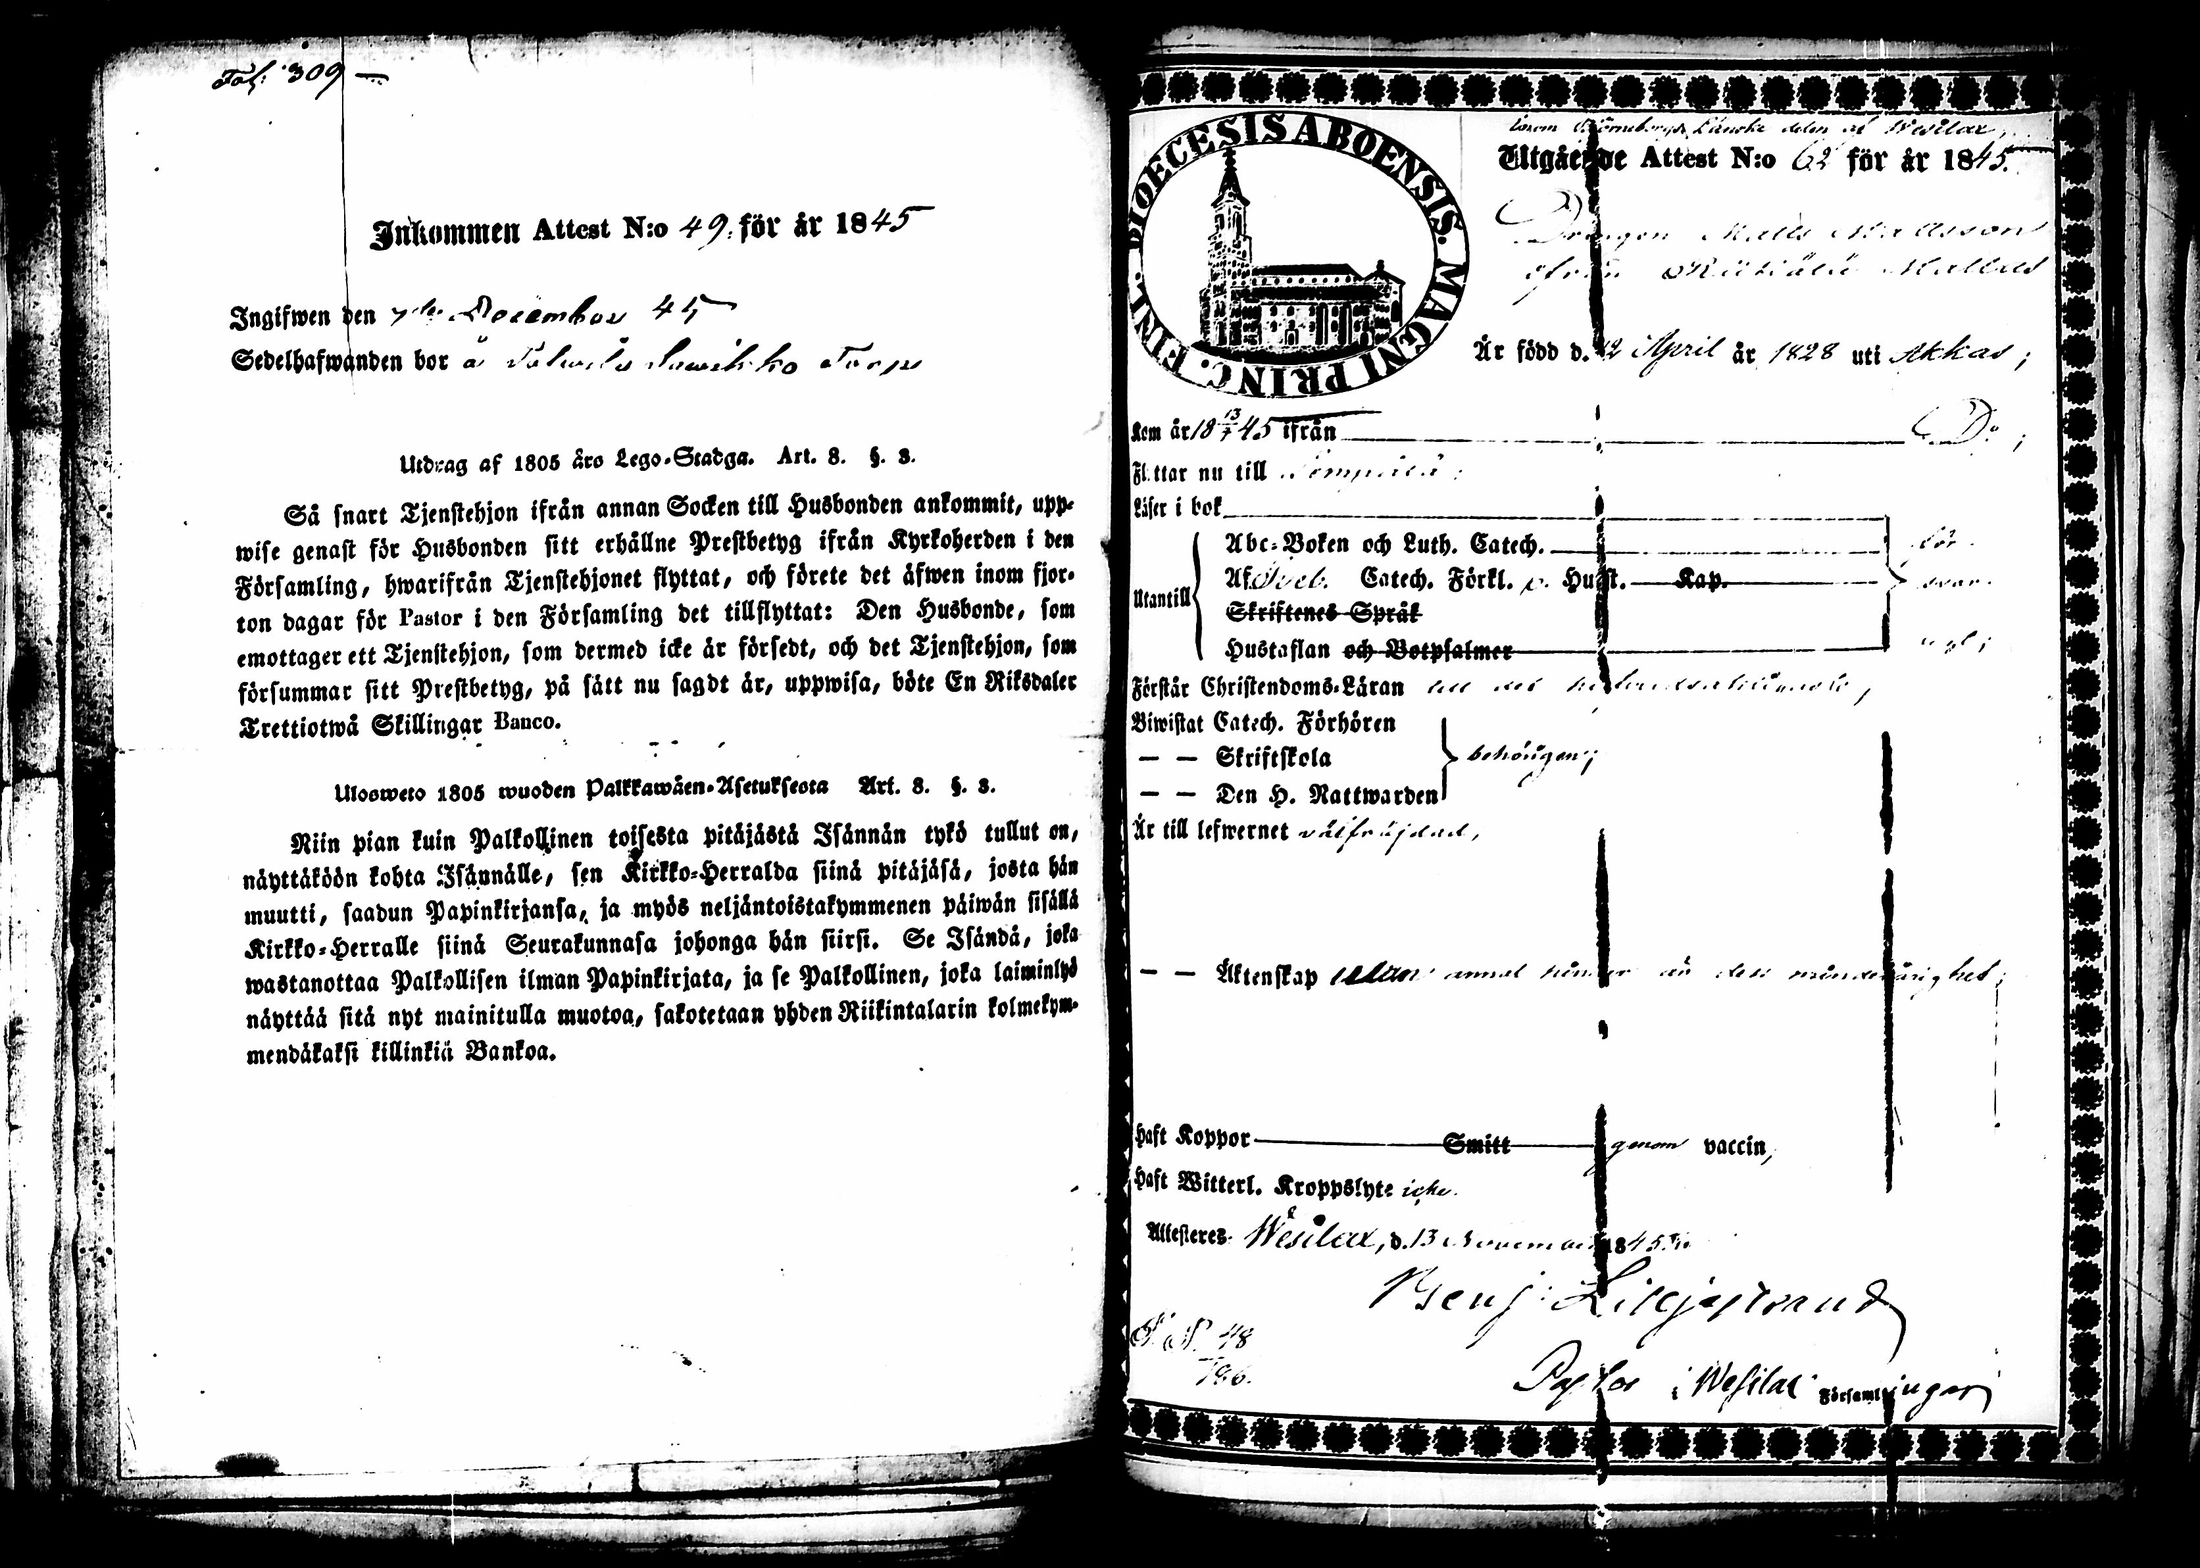 Fol. 309
Inkommen Attest N:o 49. för år 1845
Ingifwen den 7de December 45
Sedelhafwanden bor å Torp
Utdrag af 1805 års Lego-Stadga. Art. 8. §. 3.
Så snart Tjenstehjon ifrån annan Socken till Husbonden ankommit, upp-
wise genast för Husbonden sitt erhållne Prestbetyg ifrån Kyrkoherden i den
Församling, hwarifrån Tjenstehjonet flyttat, och förete det äfwen inom fjor-
ton dagar för Pastor i den Församling det tillflyttat: Den Husbonde, som
emottager ett Tjenstehjon, som dermed icke är försedt, och det Tjenstehjon, som
försummar sitt Prestbetyg, på sätt nu sagdt är, uppwisa, böte En Riksdaler
Trettiotwå Skillingar Banco.
Ulosweto 1805 wuoden Palkkawäen-Asetuksesta Art. 8. §. 3.
Niin pian kuin Palkollinen toisesta pitäjästä Isännän tykö tullut on,
näyttäköön kohta Isännälle, sen Kirkko-Herralda siinä pitäjäsä, josta hän
muutti, saadun Papinkirjansa, ja myös neljäntoistakymmenen päiwän sisällä
Kirkko-Herralle siinä Seurakunnasa johonga hän siirsi. Se Isändä, joka
wastanottaa Palkollisen ilman Papinkirjata, ja se Palkollinen, joka laiminlyö
näyttää sitä nyt mainitulla muotoa, sakotetaan yhden Riikintalarin kolmekym-
mendäkaksi killinkiä Bankoa.
DIOECESIS ABOENSIS. MAGNI PRINC. FINL.
inom Björneborgs Länska delen af Wesilax,
Utgående Attest N:o 62 för år 1845.
Drängen Matts Mattsson
ifrån
Är född d. 12 April år 1828 uti Akkas;
Kom år 18 13/4 45 ifrån Do;
Flyttar nu till Lempäälä;
Läser i bok
Abc-Boken och Luth. Catech. för
Utantill Af Sveb. Catech. Förkl. o. Hust. Kap. swar
Skriftenes Språk
Hustaflan och Botpsalmer
Förstår Christendoms-Läran till det
Biwistat Catech. Förhören
— — Skriftskola behörigen;
— — Den H. Nattwarden
Är till lefwernet välfräjdad,
— — Äktenskap utan annat hinder än dess minderårighet;
Haft Koppor Smitt genom vaccin,
Haft Witterl. Kroppslyte icke.
Attesteres Wesilax, d. 13 November 1845.
Benj: Liljestrand
48
196.
Pastor i Wesilax Församlingar